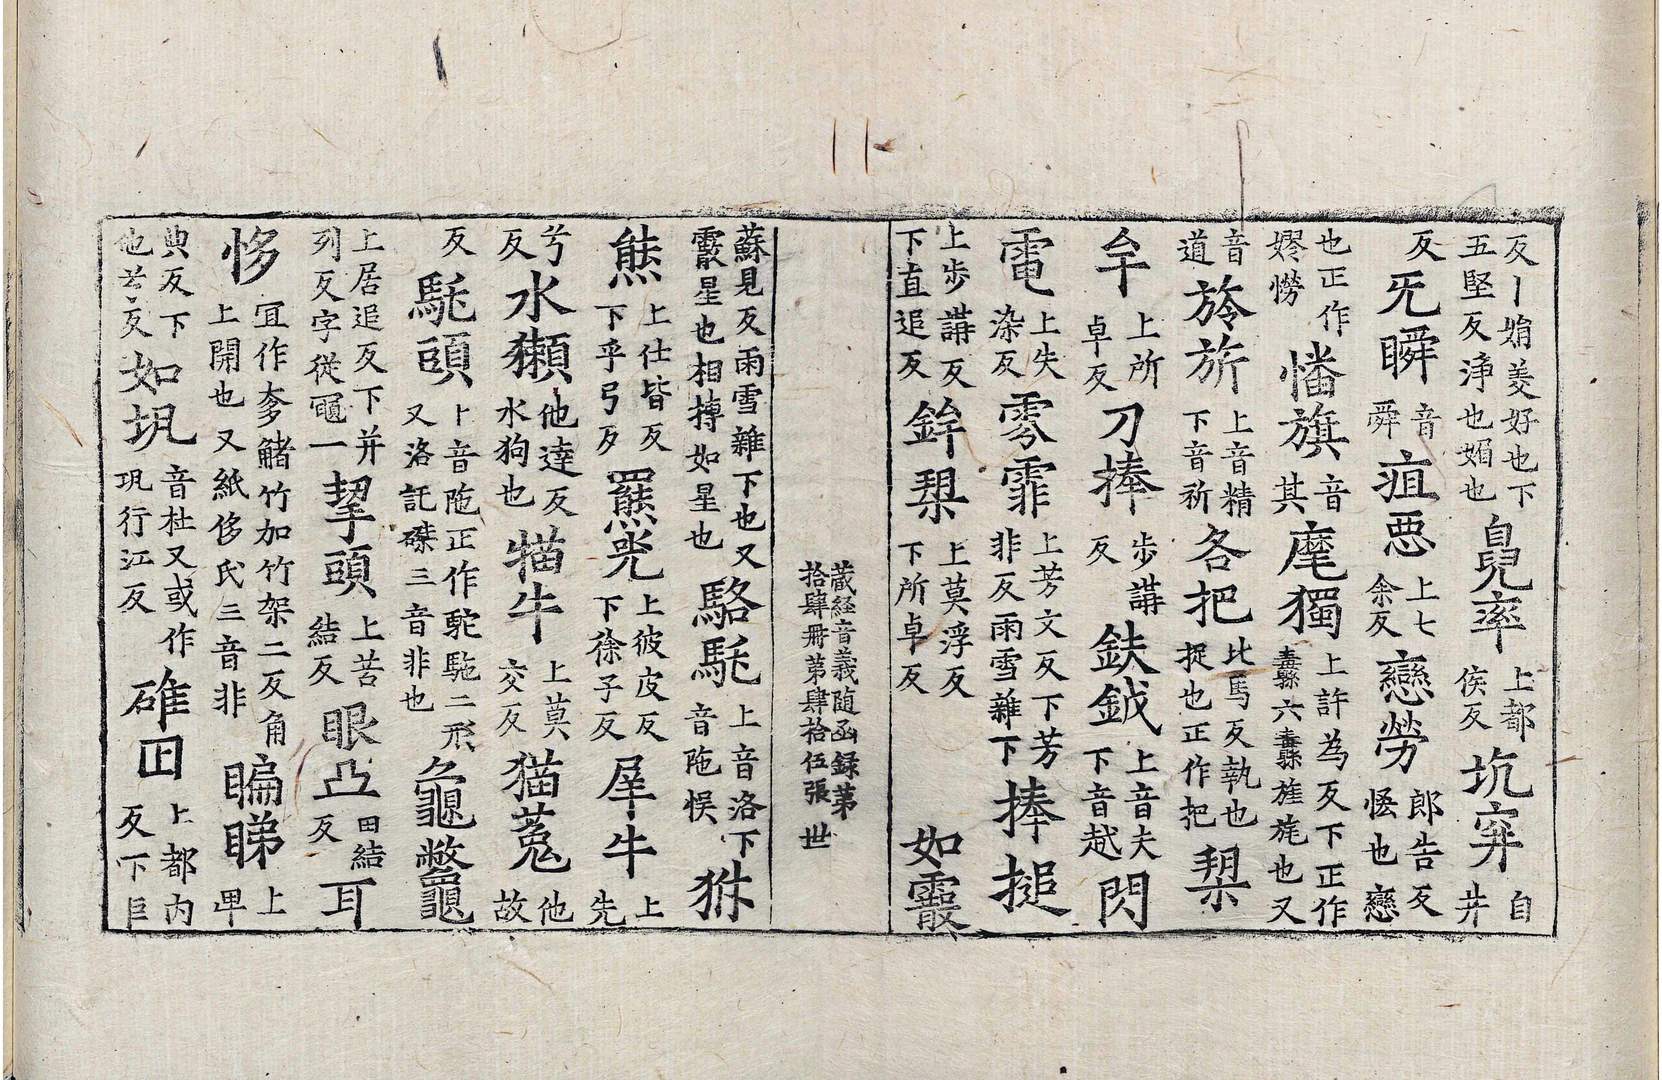 反丨娟羙好也下五堅反淨也媚也皃率上都侯反坑穽自井
反旡瞬音舜疽惡上七余反戀勞郎告反恡也戀
也正作嫪憦憣旗音其麾獨上許為反下正作纛六纛旌旄也又
音道旍旂上音精下音祈各把比馬反執也捉也正作把槊
牟上所卓反刀捧步講反鈇鉞上音夫下音越閃
電上失染反雰霏上芳文反下芳非反雨雪雜下捧搥
上步講反下直追反鉾槊上莫浮反下所卓反如霰
藏経音義随函録第
拾肆冊第肆拾伍張 世
蘇見反雨雪雜下也又霰星也相搏如星也駱駞上音洛下音陁悮㹯
熊上仕皆反下乎弓反羆兕上彼皮反下徐子反犀牛上先
兮反水獺他達反水狗也猫牛上莫交反猫菟他故
反駞頭上音陁正作駝駞二形又洛託磔三音非也龜鼈
上居追反下并列反字従黽一挈頭上苦結反眼凸田結反耳
恀冝作奓觰竹加竹架二反角上開也又紙侈氏三音非䀎睇上甼
典反下他兮反如㧈音杜又或作㺬行江反碓臼上都内反下巨